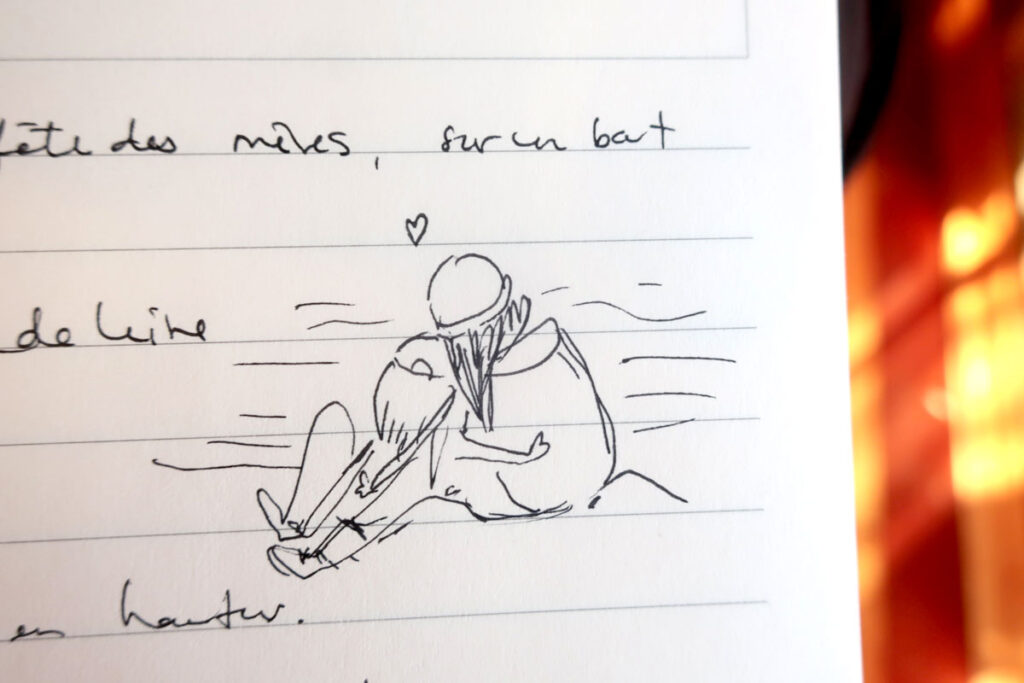 fête des mères, sur un bout
de
en hauteur.